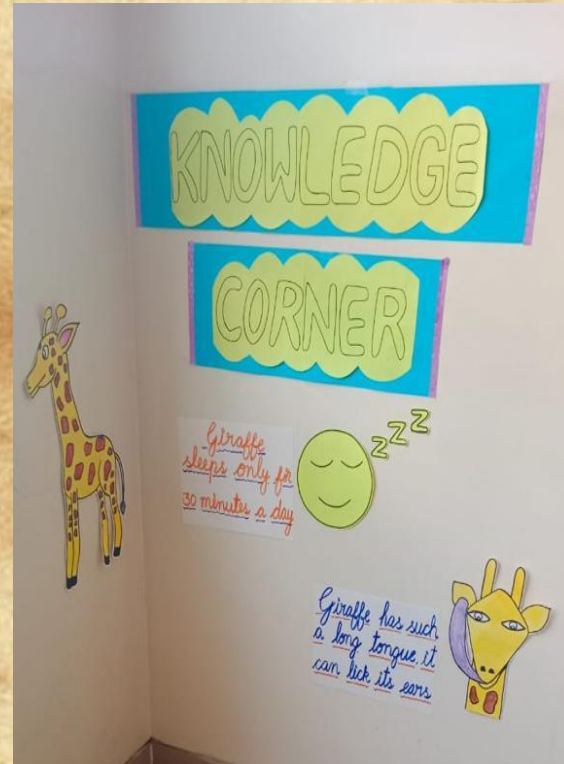 KNOWLEDGE
CORNER
Giraffe
sleeps only for
30 minutes a day
z z z
Giraffe has such
a long tongue it
can lick its ears